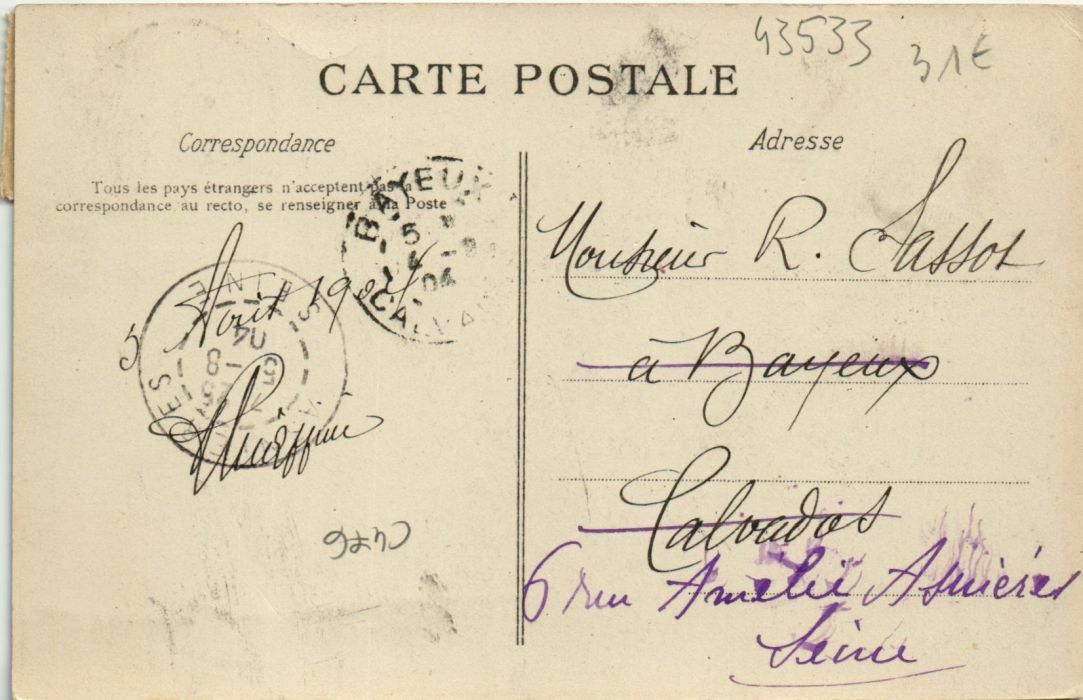 43533
31€
CARTE POSTALE
Correspondance
Adresse
Tous les pays étrangers n'acceptent pas la
correspondance au recto, se renseigner à la Poste
BAYEUX
5
04
CALVA
5 Août 1904
Monsieur R. Sassot
à Bayeux
Calvados
6 rue Amélie Asnières
Seine